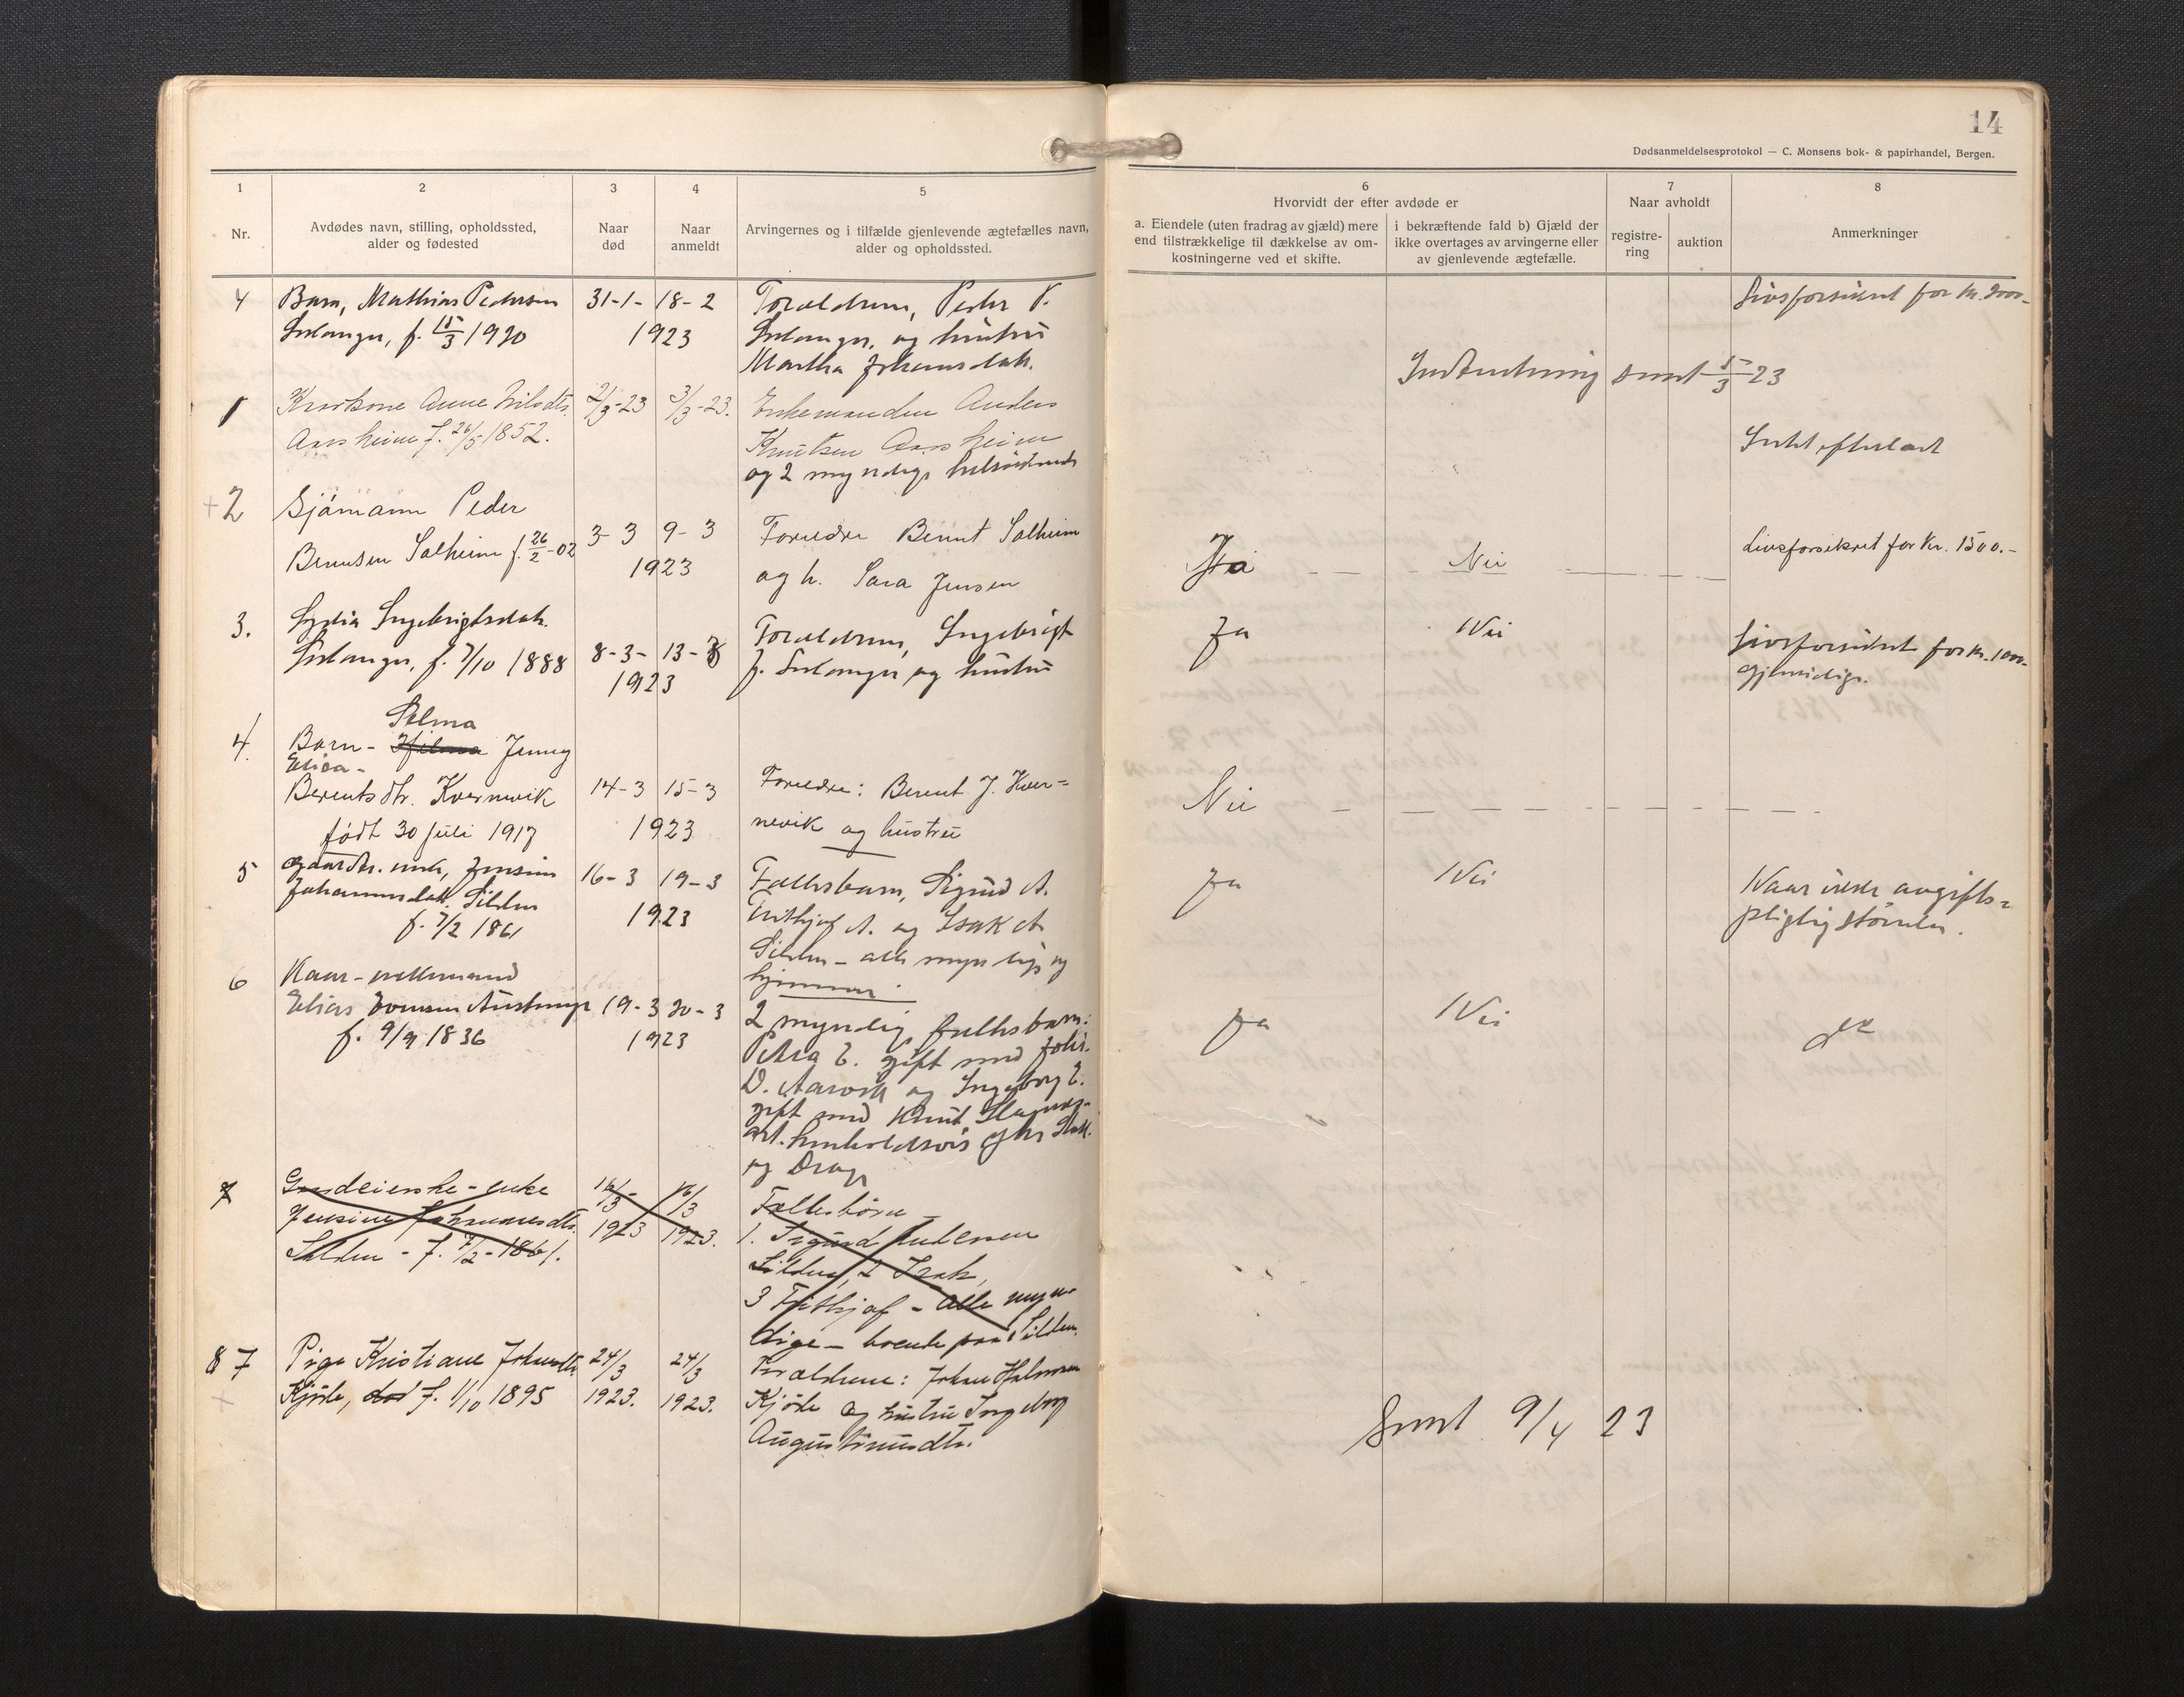 14
Dødsanmeldelsesprotokol — C. Monsens bok- & papirhandel, Bergen.
1
Nr.
2
Avdødes navn, stilling, opholdssted,
alder og fødested
3
Naar
død
4
Naar
anmeldt
5
Arvingernes og i tilfælde gjenlevende ægtefælles navn,
alder og opholdssted.
6
Hvorvidt der efter avdøde er
a. Eiendele (uten fradrag av gjæld) mere
end tilstrækkelige til dækkelse av om-
kostningerne ved et skifte.
i bekræftende fald b) Gjæld der
ikke overtages av arvingerne eller
av gjenlevende ægtefælle.
7
Naar avholdt
registre-
ring
auktion
8
Anmerkninger
4
Barn, Mathias Pedersen
f. 15/3 1920
31-1- 18-2
1923
Forældrene, Peder P.
og hustru
Martha
Livsforsikret for kr.
Indberetning sendt 5/3 23
1
Anne Nilsdtr.
Aarsheim f. 26/5 1852.
2/3-23
3/3-23.
Enkemanden Anders
Knutsen Aarsheim
og 2 myndige
Intet efterladt
+2
Sjømann Peder
Berntsen Salheim f. 26/2-02
3-3 9-3
1923
Foreldre Bernt Salheim
og h. Sara Jensen
Ja — — Nei — —
Livsforsikret for Kr. 1500.-
3.
Lydia Ingebrigtsdatr.
f. 7/10 1888
8-3- 13-3
1923
Forældrene, Ingebrigt
J. og hustru
Ja
Nei
Livsforsikret for kr.
4.
Selma
Barn - Jenny
Berentsdtr. Kvernevik
født 30 juli 1917
14-3 15-3
1923
Foreldre: Berent J. Kver=
nevik og hustru
Nei — — —
5
enke, Jensine
Johannesdatr. Silden
f. 7/2 1861
16-3 19-3
1923
Fællesbarn, Sigurd A.
Frithjof A. og Isak A.
Silden - alle myndige og
hjemme.
Ja
Nei
Naar ikke avgifts=
pligtig størrelse.
6
Kaar-
Elias
f. 9/9 1836
19-3 20-3
1923
2 myndig fællesbarn:
Petra E. gift med Johs.
D. og Ingeborg E.
gift med Knut
og Drage
Ja
Nei
7
Gaardeierske - enke
Jensine Johannesdtr.
Silden - f. 7/2-1861.
16/3-
1923
16/3
1923.
Fællesbørn -
1. Sigurd Andersen
Silden, 2 Isak,
3 Frithjof - alle myn-
dige - boende paa Silden.
8 7
Pige Kristiane Johansdtr.
Kjøde, død f. 1/10 1895
24/3
1923.
24/3
1923.
Forældrene: Johan
Kjøde og hustru Ingeborg
Augustinusdtr.
Sendt 9/4 23